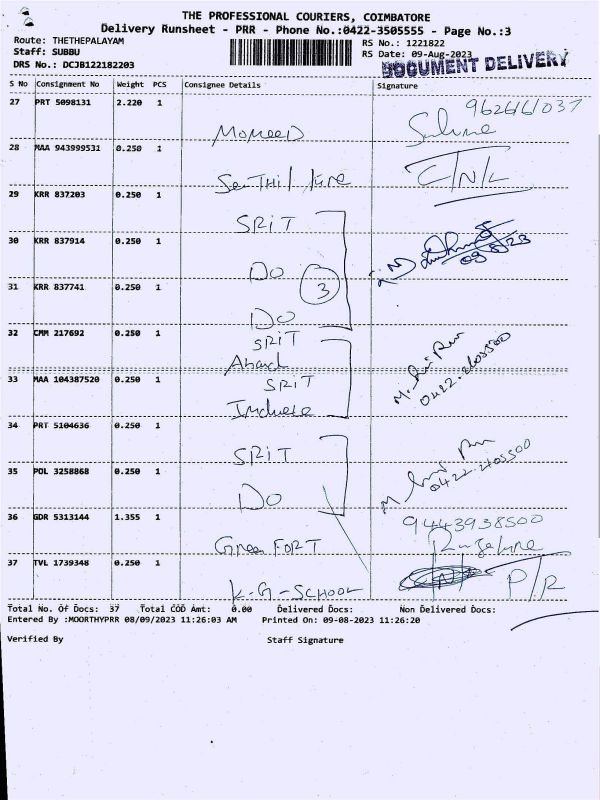 THE PROFESSIONAL COURIERS, COIMBATORE
Delivery Runsheet - PRR - Phone No.:0422-3505555 - Page No.:3
Route: THETHEPALAYAM RS No.: 1221822
Staff: SUBBU RS Date: 09-Aug-2023
DRS No.: DCJB122182203 DOCUMENT DELIVERY
S No Consignment No Weight PCS Consignee Details Signature
27 PRT 5098131 2.220 1 9626161037
28 MAA 943999531 0.250 1 C/N/L
29 KRR 837203 0.250 1 SRIT
30 KRR 837914 0.250 1 DO 3
31 KRR 837741 0.250 1 DO
32 CMM 217692 0.250 1 SRIT
Anand
33 MAA 104387520 0.250 1 SRIT 0422.2605500
34 PRT 5104636 0.250 1 SRIT
35 POL 3258868 0.250 1 DO
36 GDR 5313144 1.355 1 Green FORT 9443938500
37 TVL 1739348 0.250 1 K-G-SCHOOL P/R
Total No. Of Docs: 37 Total COD Amt: 0.00 Delivered Docs: Non Delivered Docs:
Entered By :MOORTHYPRR 08/09/2023 11:26:03 AM Printed On: 09-08-2023 11:26:20
Verified By Staff Signature